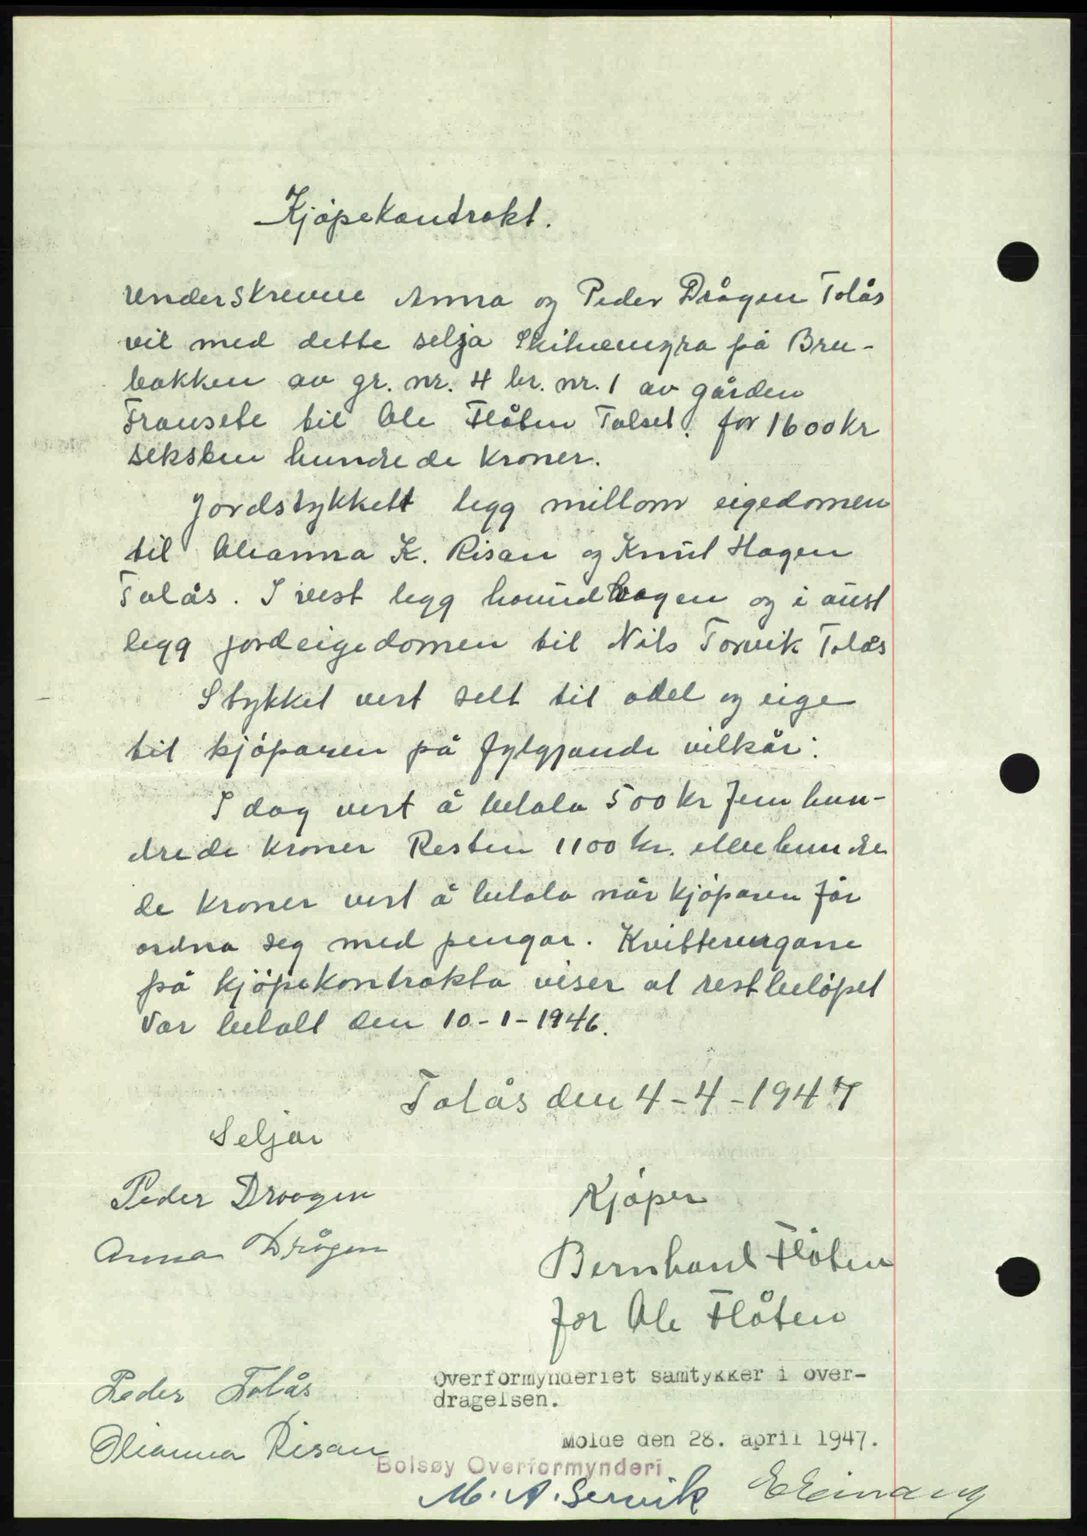 Kjöpekontrakt.
Underskrevne Anna og Peder Drågen Tolås
vil med dette selja på Bru-
bakken av gr. nr. 4 br. nr. 1 av gården
Fransete til Ole Flåten Talset. for 1600 kr
seksten hundrede kroner.
Jordstykkett legg millom eigedomen
til Olianna K. Risan og Knut Hagen
Tolås. I vest legg haugen og i aust
legg jordeigedomen til Nils Torvik Tolås
Stykket vert selt til odel og eige
til kjöparen på fylgjande vilkår:
I dag vert å betala 500 kr fem hun-
drede kroner Resten 1100 kr. ellevehundre
de kroner vert å betala når kjöparen får
ordna seg med pengar. Kvitteringane
på kjöpekontrakta viser at restbelöpet
var betalt den 10-1-1946.
Tolås den 4-4-1947
Seljar
Peder Droogen
Anna Drågen
Kjöper
Bernhard Flåten
for Ole Flåten
Peder Tolås
Olianna Risan
Overformynderiet samtykker i over-
dragelsen.
Molde den 28. april 1947.
Bolsøy Overformynderi
M. A. Servik